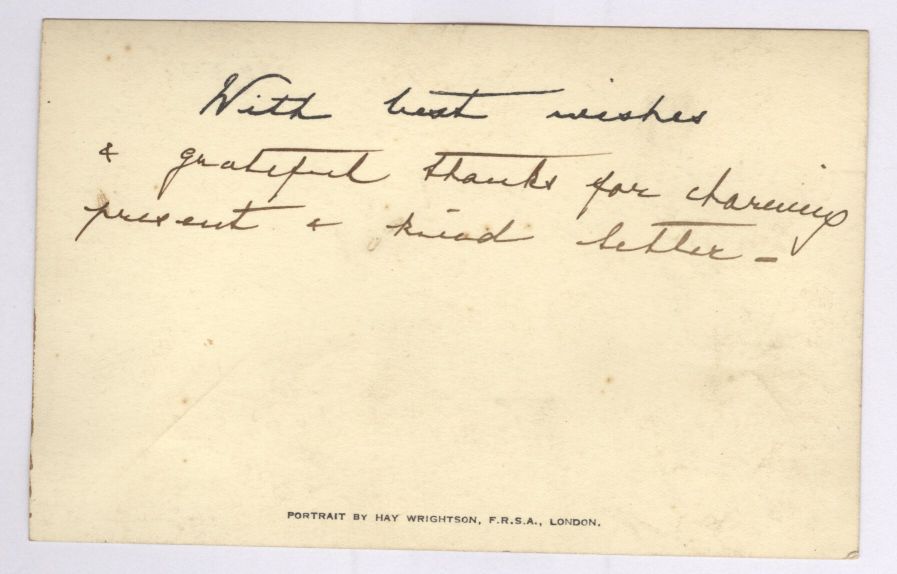 With best wishes
& grateful thanks for charming
present & kind letter –
PORTRAIT BY HAY WRIGHTSON, F.R.S.A., LONDON.